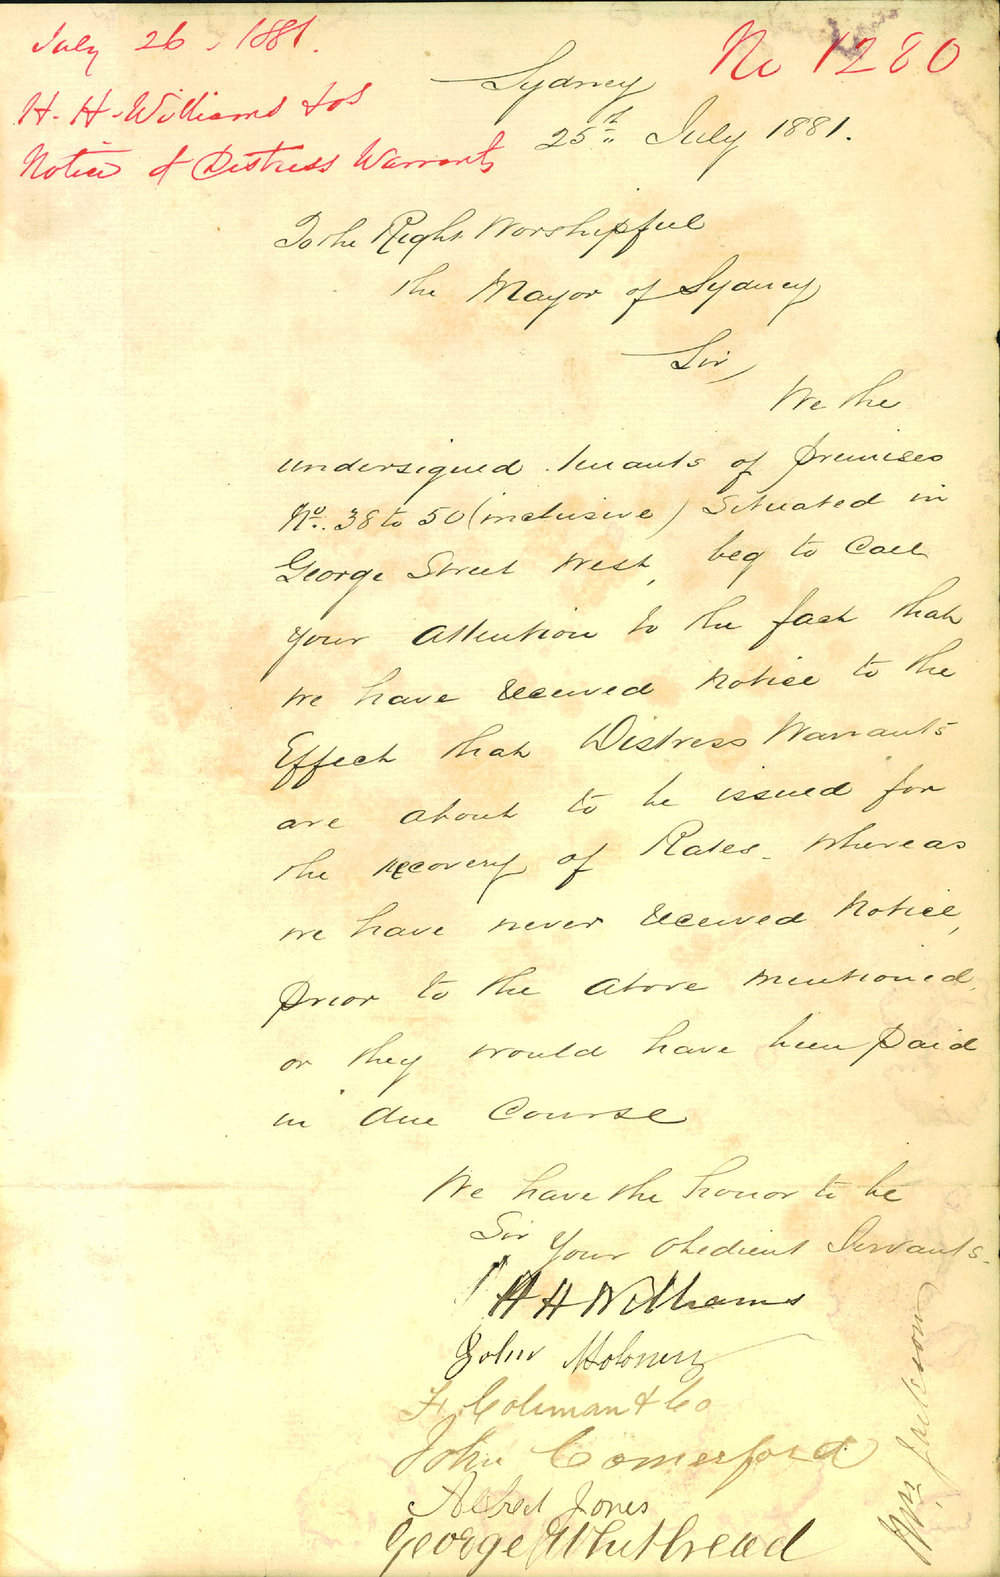 July 26, 1881.
No 1280
H. H. Williams & os
Notice of Distress Warrants
Sydney
25th July 1881.
To the Right Worshipful
the Mayor of Sydney
Sir,
We the
undersigned tenants of premises
No. 38 to 50 (inclusive) situated in
George Street West, beg to call
your attention to the fact that
we have received notice to the
Effect that Distress Warrants
are about to be issued for
the recovery of Rates - whereas
we have never received notice,
prior to the above mentioned,
or they would have been paid
in due course
We have the honor to be
Sir
Your obedient Servants.
H H Williams
John Moloney
F. Coleman & Co
John Comerford
Alfred Jones
George Whitbread
Wm Jackson